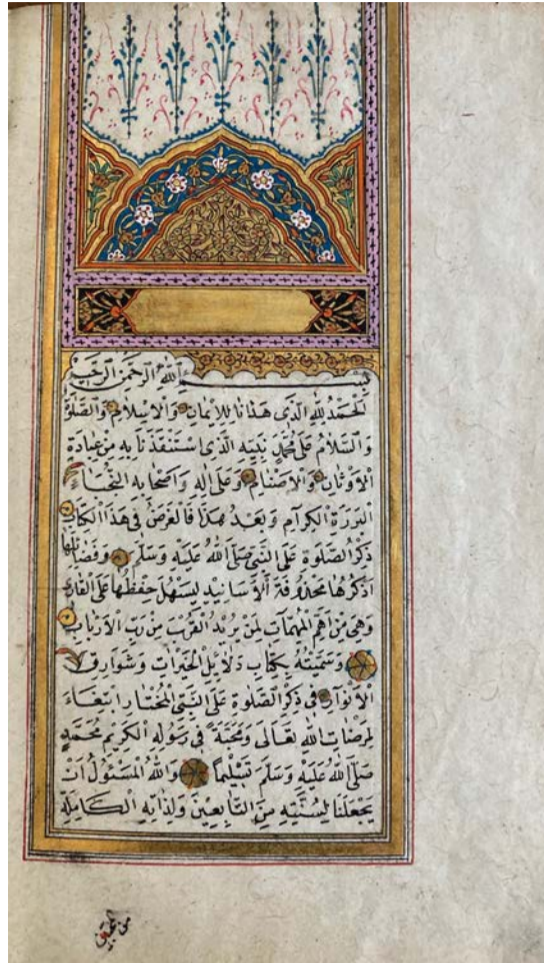 بِسْمِ اللهِ الرَّحْمٰنِ الرَّحِيمِ
اَلْحَمْدُ لِلّٰهِ الَّذِى هَدَانَا لِلْاِيْمَانِ وَالْاِسْلَامِ وَالصَّلٰوةُ
وَالسَّلَامُ عَلٰى مُحَمَّدٍ نَبِيِّهِ الَّذِى اسْتَنْقَذَنَا بِهِ مِنْ عِبَادَةِ
الْاَوْثَانِ وَالْاَصْنَامِ وَعَلٰى اٰلِهِ وَاَصْحَابِهِ النُّجَبَاءِ
الْبَرَرَةِ الْكِرَامِ وَبَعْدُ هٰذَا فَالْغَرَضُ فِى هٰذَا الْكِتَابِ
ذِكْرُ الصَّلٰوةِ عَلَى النَّبِىِّ صَلَّى اللهُ عَلَيْهِ وَسَلَّمَ وَفَضَائِلُهَا
اَذْكُرُهَا مَحْذُوفَةَ الْاَسَانِيْدِ لِيَسْهُلَ حِفْظُهَا عَلَى الْقَارِئِ
وَهِىَ مِنْ اَهَمِّ الْمُهِمَّاتِ لِمَنْ يُرِيْدُ الْقُرْبَ مِنْ رَبِّ الْاَرْبَابِ
وَسَمَّيْتُهُ بِكِتَابِ دَلَائِلِ الْخَيْرَاتِ وَشَوَارِقِ
الْاَنْوَارِ فِى ذِكْرِ الصَّلٰوةِ عَلَى النَّبِىِّ الْمُخْتَارِ ابْتِغَاءً
لِمَرْضَاتِ اللهِ تَعَالٰى وَمَحَبَّةً فِى رَسُولِهِ الْكَرِيْمِ مُحَمَّدٍ
صَلَّى اللهُ عَلَيْهِ وَسَلَّمَ تَسْلِيْمًا وَاللهُ الْمَسْئُولُ اَنْ
يَجْعَلَنَا لِسُنَّتِهِ مِنَ التَّابِعِيْنَ وَلِذَاتِهِ الْكَامِلَةِ